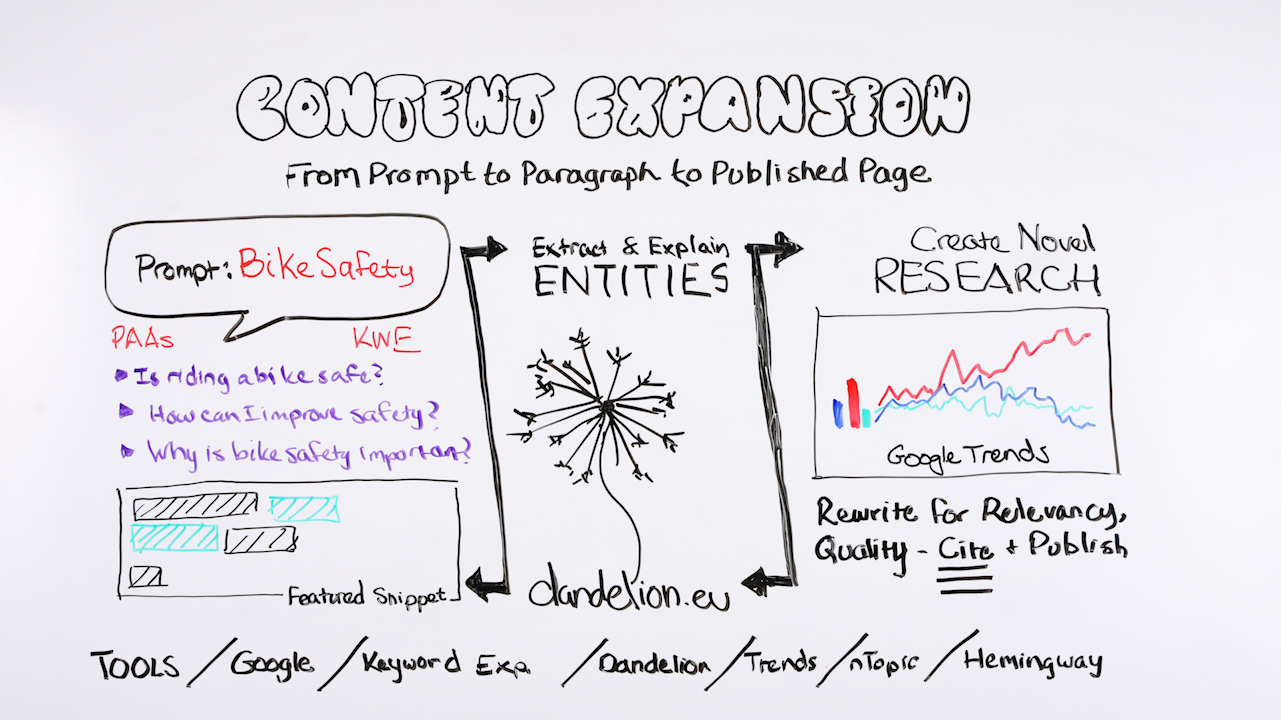 CONTENT EXPANSION
From Prompt to Paragraph to Published Page
Prompt: Bike Safety
PAAs KWE
Is riding a bike safe?
How can I improve safety?
Why is bike safety important?
Featured Snippet
Extract & Explain
ENTITIES
dandelion.eu
Create Novel
RESEARCH
Google Trends
Rewrite for Relevancy,
Quality - Cite + Publish
TOOLS / Google / Keyword Exp. / Dandelion / Trends / nTopic / Hemingway